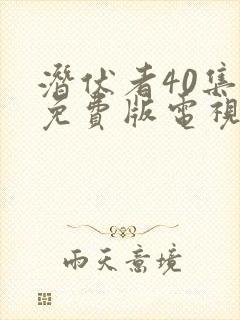 潛伏者40集
免費版電視
雨天意境